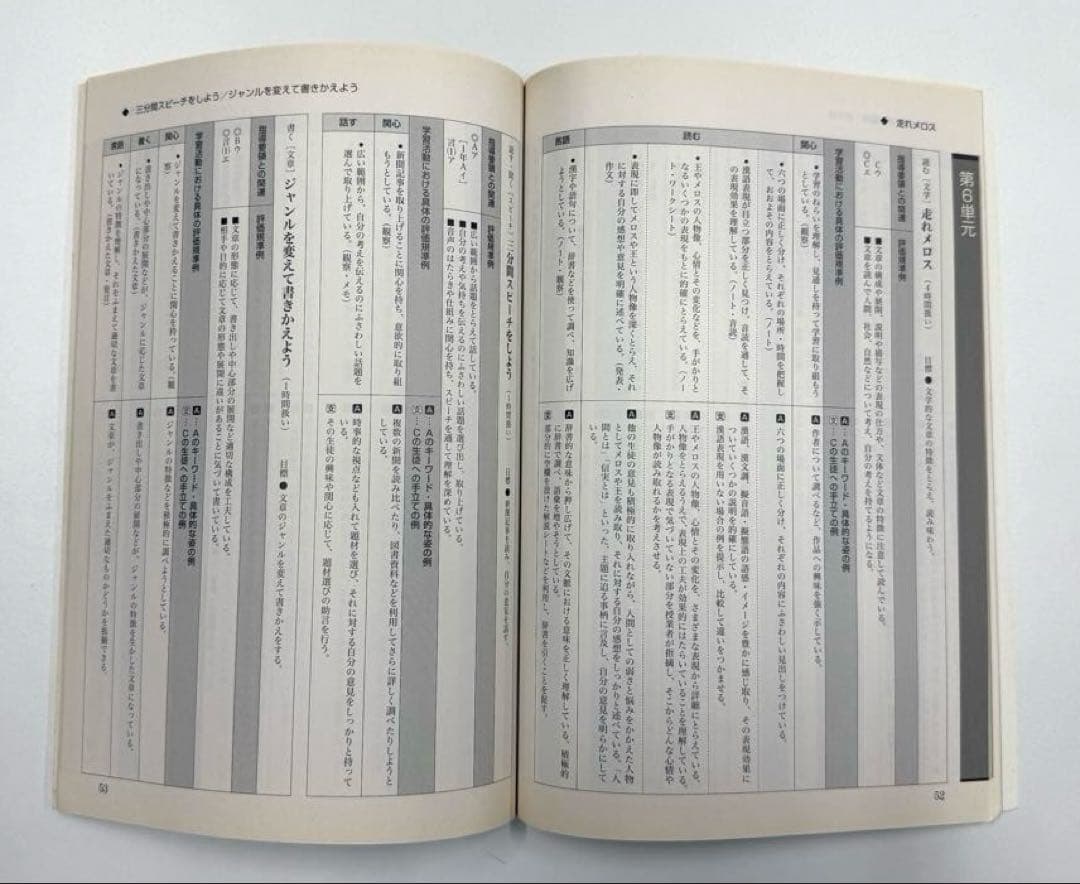 走れメロス
第6単元
読む〔文学〕 走れメロス (4時間扱い) 目標 ● 文学的な文章の特徴をとらえ、読み味わう。
指導要領との関連
評価規準例
◎Cウ
○Cエ
■文章の構成や展開、説明や描写などの表現の仕方や、文体など文章の特徴に注意して読んでいる。
■文章を読んで人間、社会、自然などについて考え、自分の考えを持てるようになる。
学習活動における具体の評価規準例
A…Aのキーワード・具体的な姿の例
文…Cの生徒への手立ての例
関心
●学習のねらいを理解し、見通しを持って学習に取り組もう
としている。(観察)
A 作者について調べるなど、作品への興味を強く示している。
読む
●六つの場面に正しく分け、それぞれの場所・時間を把握し
て、おおよその内容をとらえている。(ノート)
A 六つの場面に正しく分け、それぞれの内容にふさわしい見出しをつけている。
●漢語表現が目立つ部分を正しく見つけ、音読を通して、そ
の表現効果を理解している。(ノート・音読)
A 漢語、漢文調、擬音語・擬態語の語感・イメージを豊かに感じ取り、その表現効果に
ついていくつかの説明を的確にしている。
文 漢語表現を用いない場合の例を提示し、比較して違いをつかませる。
●王やメロスの人物像、心情とその変化などを、手がかりと
なるいくつかの表現をもとに的確にとらえている。(ノー
ト・ワークシート)
A 王やメロスの人物像、心情とその変化を、さまざまな表現から詳細にとらえている。
人物像をとらえるうえで、表現上の工夫が効果的にはたらいていることを理解している。
文 手がかりとなる表現で気づいていない部分を授業者が指摘し、そこからどんな心情や
人物像が読み取れるかを考えさせる。
●表現に即してメロスや王という人物像を深くとらえ、それ
に対する自分の感想や意見を明確に述べている。(発表・
作文)
A 他の生徒の意見も積極的に取り入れながら、人間としての弱さと悩みをかかえた人物
としてメロスや王を読み取り、それに対する自分の感想をしっかりと述べている。「人
間とは」「信実とは」といった、主題に迫る事柄に言及し、自分の意見を明らかにして
いる。
言語
●漢字や語句について、辞書などを使って調べ、知識を広げ
ようとしている。(ノート・観察)
A 辞書的な意味から押し広げて、その文脈における意味を正しく理解している。積極的
に辞書で調べ、語彙を増やそうとしている。
文 部分的に空欄を設けた解説シートなどを利用し、辞書を引くことを促す。
52
三分間スピーチをしよう/ジャンルを変えて書きかえよう
話す・聞く〔スピーチ〕 三分間スピーチをしよう (1時間扱い) 目標 ● 新聞記事を読み、自分の意見を話す。
指導要領との関連
評価規準例
◎Aア
〔1年Aイ〕
言(1)ア
■広い範囲から話題をとらえて話している。
■自分の考えや気持ちを伝えるのにふさわしい話題を選び出し、取り上げている。
■音声のはたらきや仕組みに関心を持ち、スピーチを通して理解を深めている。
学習活動における具体の評価規準例
A…Aのキーワード・具体的な姿の例
文…Cの生徒への手立ての例
関心
●新聞記事を取り上げることに関心を持ち、意欲的に取り組
もうとしている。(観察)
A 複数の新聞を読み比べたり、図書資料などを利用してさらに詳しく調べたりしようと
している。
話す
●広い範囲から、自分の考えを伝えるのにふさわしい話題を
選んで取り上げている。(観察・メモ)
A 時事的な視点なども入れて題材を選び、それに対する自分の意見をしっかりと持って
いる。
文 その生徒の興味や関心に応じて、題材選びの助言を行う。
書く〔文章〕 ジャンルを変えて書きかえよう (1時間扱い) 目標 ● 文章のジャンルを変えて書きかえをする。
指導要領との関連
評価規準例
◎Bウ
○言(1)エ
■文章の形態に応じて、書き出しや中心部分の展開など適切な構成を工夫している。
■相手や目的に応じて文章の形態や展開に違いがあることに気づいて書いている。
学習活動における具体の評価規準例
A…Aのキーワード・具体的な姿の例
文…Cの生徒への手立ての例
関心
●ジャンルを変えて書きかえることに関心を持っている。(観
察)
A ジャンルの特徴などを積極的に調べようとしている。
書く
●書き出しや中心部分の展開などが、ジャンルに応じた文章
になっている。(書きかえた文章)
A 書き出しや中心部分の展開などが、ジャンルの特徴を生かした文章になっている。
言語
●ジャンルの特徴を理解し、それをふまえて適切な文章を書
いている。(書きかえた文章・発言)
A 文章が、ジャンルをふまえた適切なものかどうかを指摘できる。
53